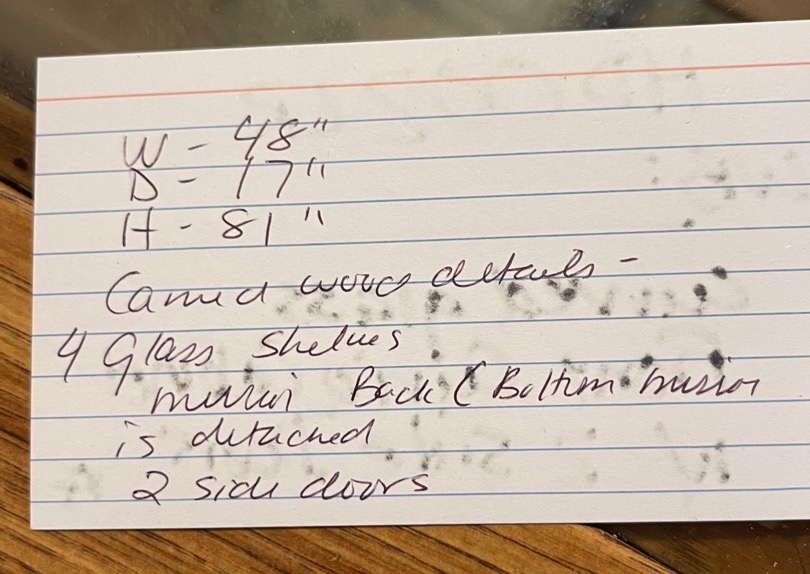 W - 48"
D - 17"
H - 81"
Carved wood details -
4 Glass Shelves
mirror Back ( Bottom mirror
is detached
2 side doors